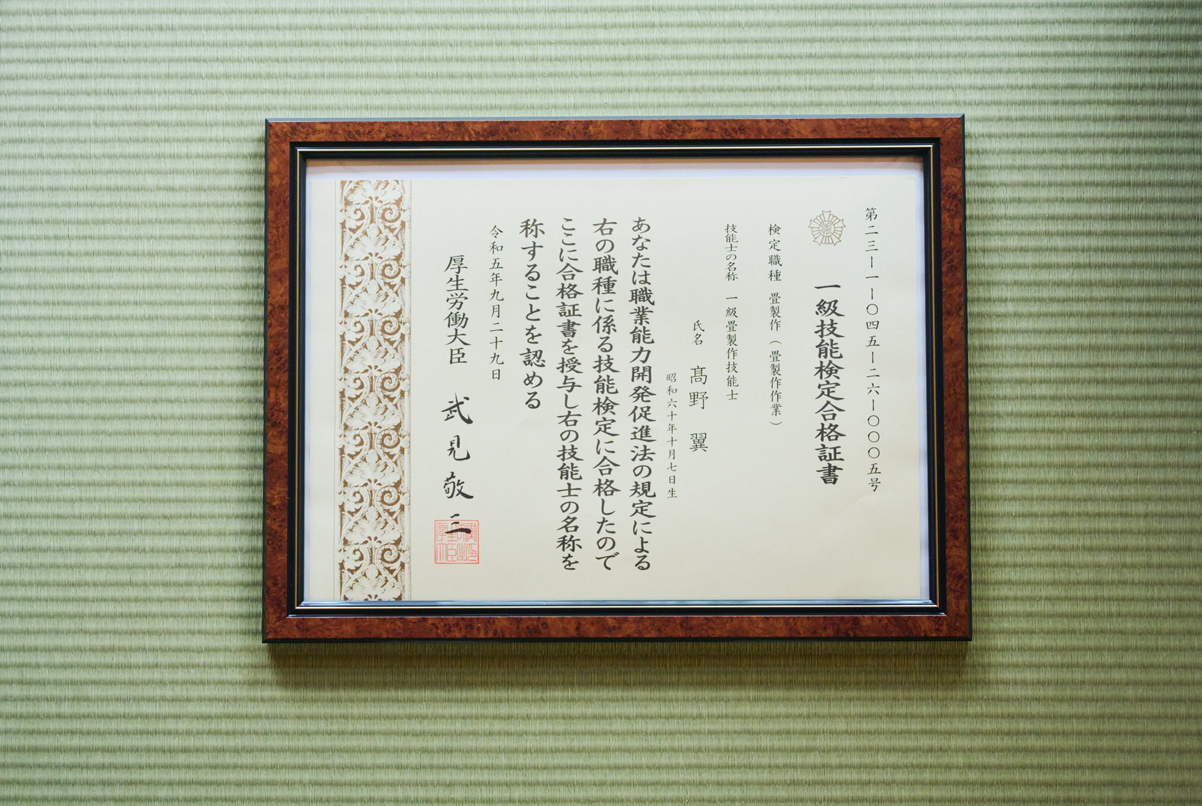 第二三ー一ー〇四五ー二六ー〇〇〇五号
一級技能検定合格証書
検定職種 畳製作（畳製作作業）
技能士の名称 一級畳製作技能士
氏名 髙野 翼
昭和六十年十月七日生
あなたは職業能力開発促進法の規定による
右の職種に係る技能検定に合格したので
ここに合格証書を授与し右の技能士の名称を
称することを認める
令和五年九月二十九日
厚生労働大臣 武見敬三